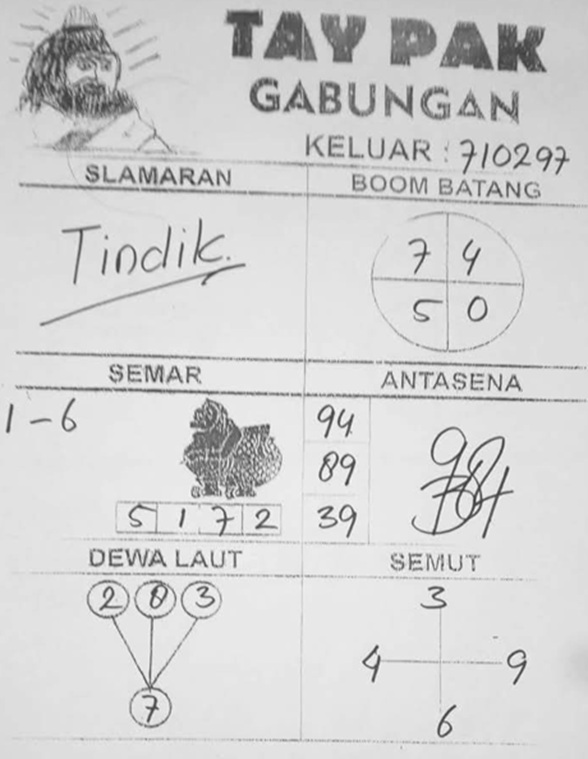 TAY PAK
GABUNGAN
KELUAR : 710297
SLAMARAN
BOOM BATANG
Tindik.
7 4
5 0
SEMAR
ANTASENA
1-6
94
89
39
5 1 7 2
DEWA LAUT
SEMUT
2 0 3
7
3
4 9
6